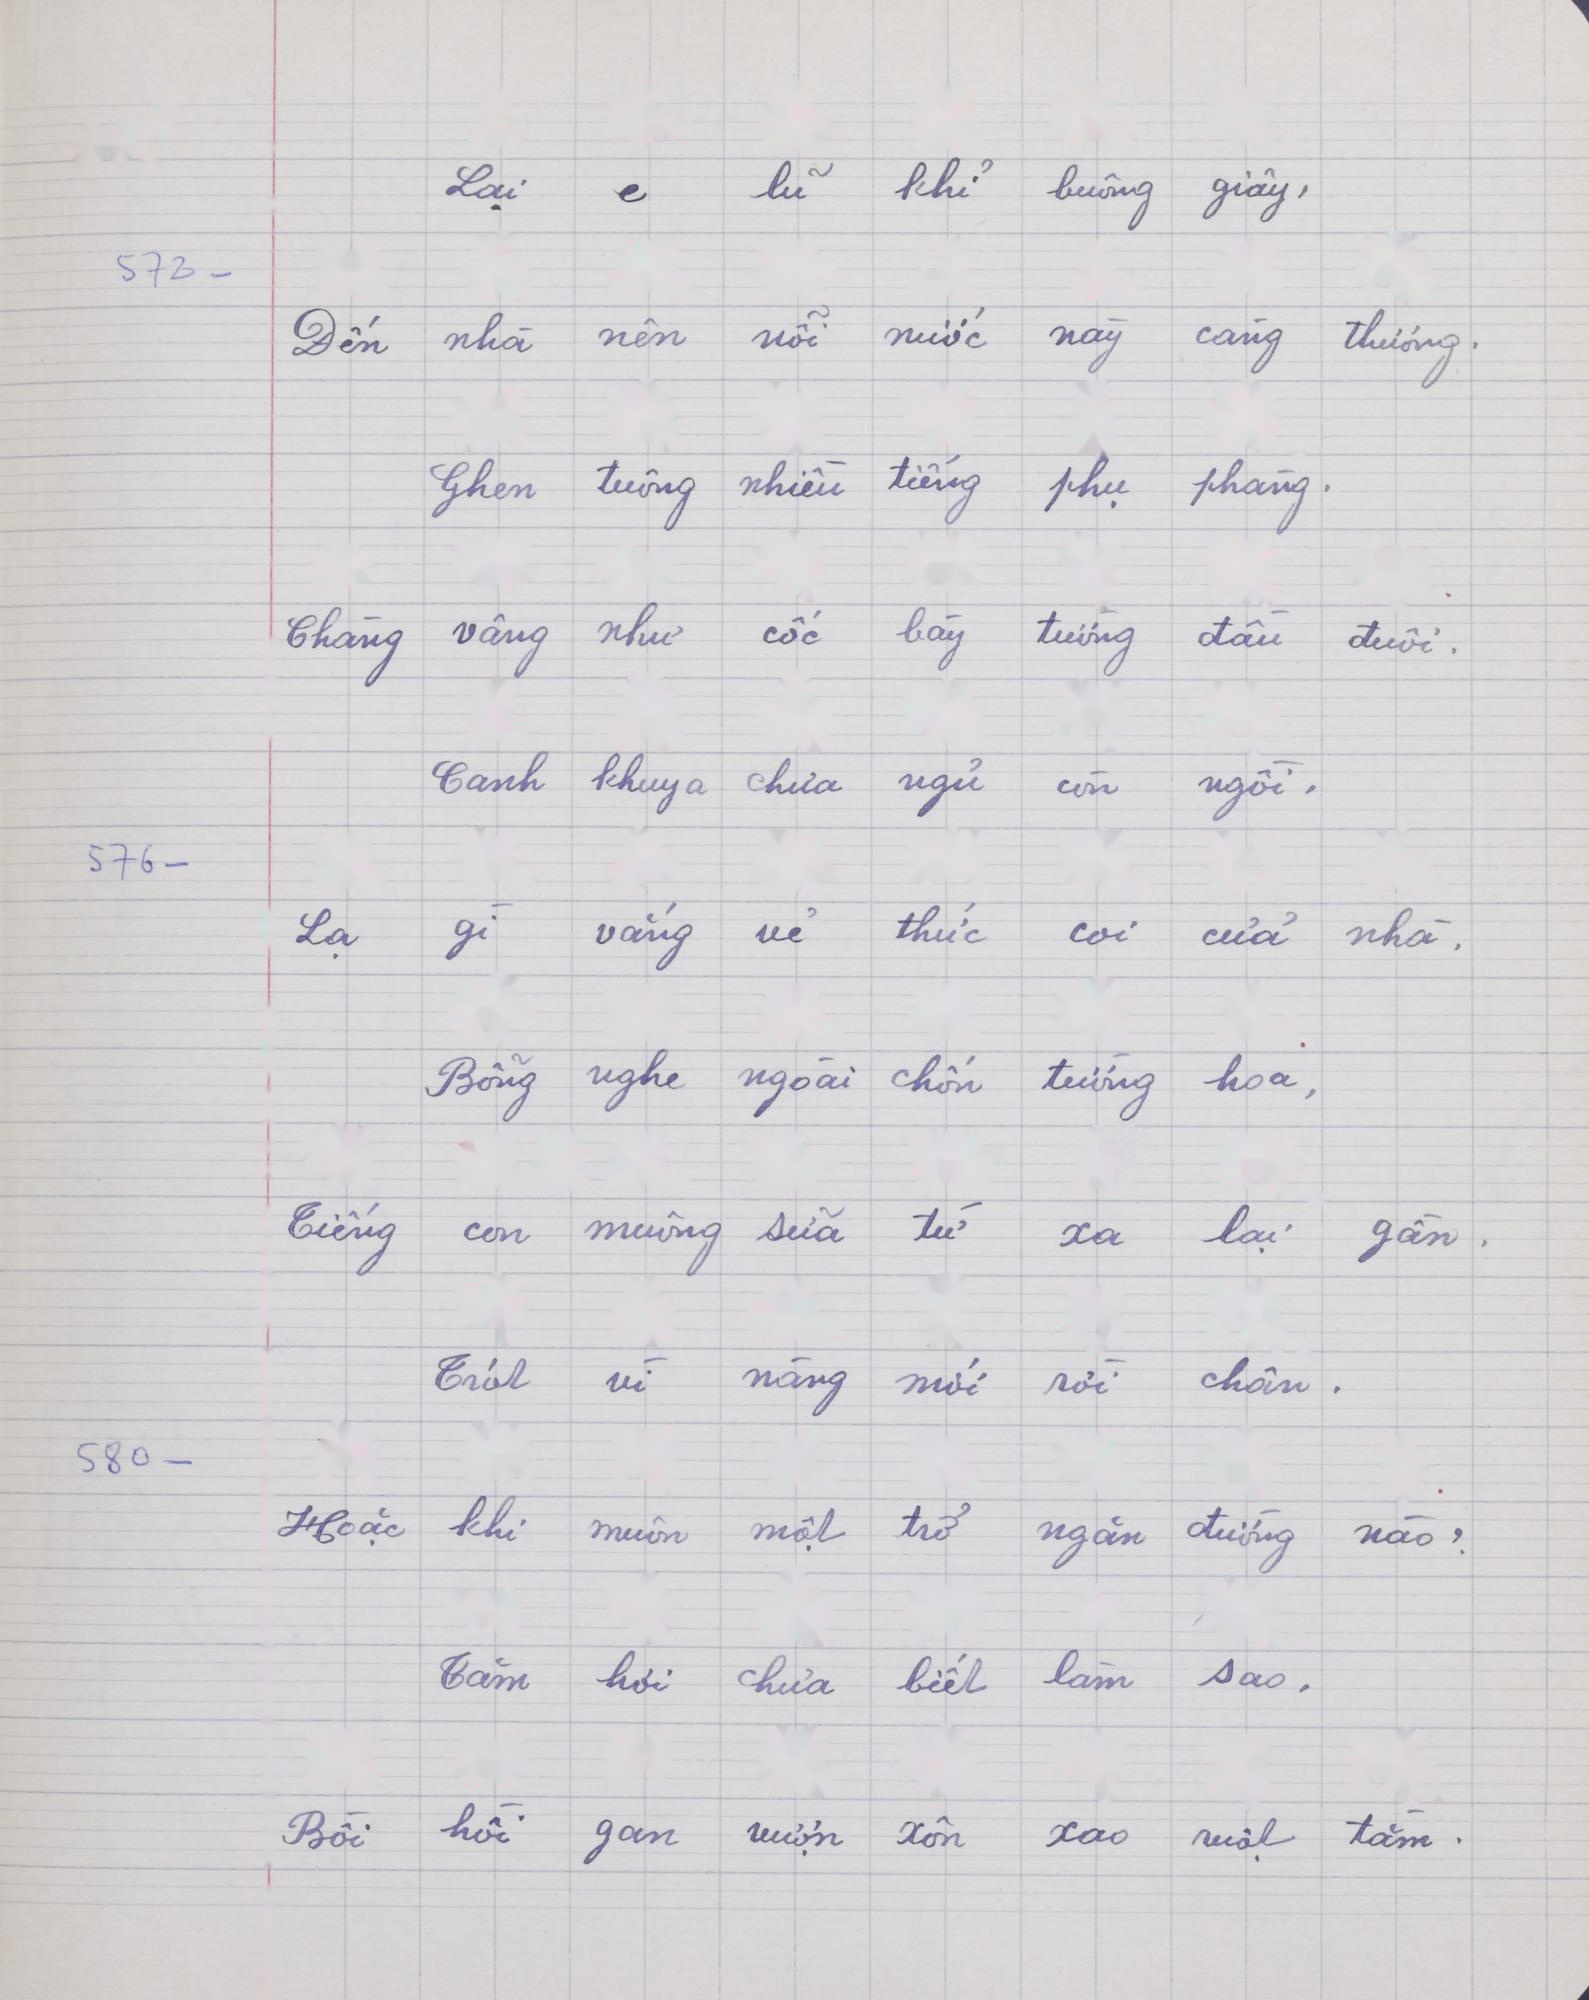 Lại e lũ khỉ buông giây,
572-
Đến nhà nên nỗi nước này càng thương.
Ghen tuông nhiều tiếng phụ phàng.
Chàng vâng như cốc bảy tường đầu đuôi.
Canh khuya chưa ngủ còn ngồi.
576-
Lạ gì vắng vẻ thức coi cửa nhà.
Bỗng nghe ngoài chốn tường hoa,
Tiếng con muông sủa từ xa lại gần.
Trót vì nàng mới rời chân.
580-
Hoặc khi muôn một trở ngăn đường nào?
Tăm hơi chưa biết làm sao.
Bồi hồi gan vượn xôn xao ruột tằm.